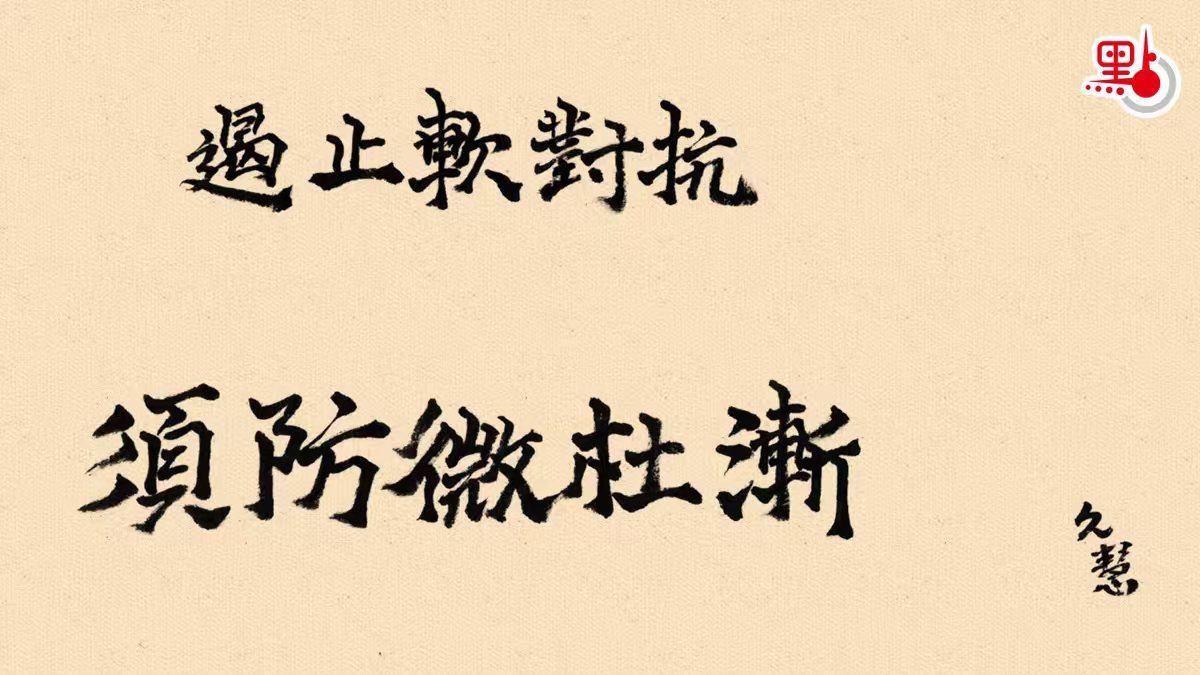 點
遏止軟對抗
須防微杜漸
久慧